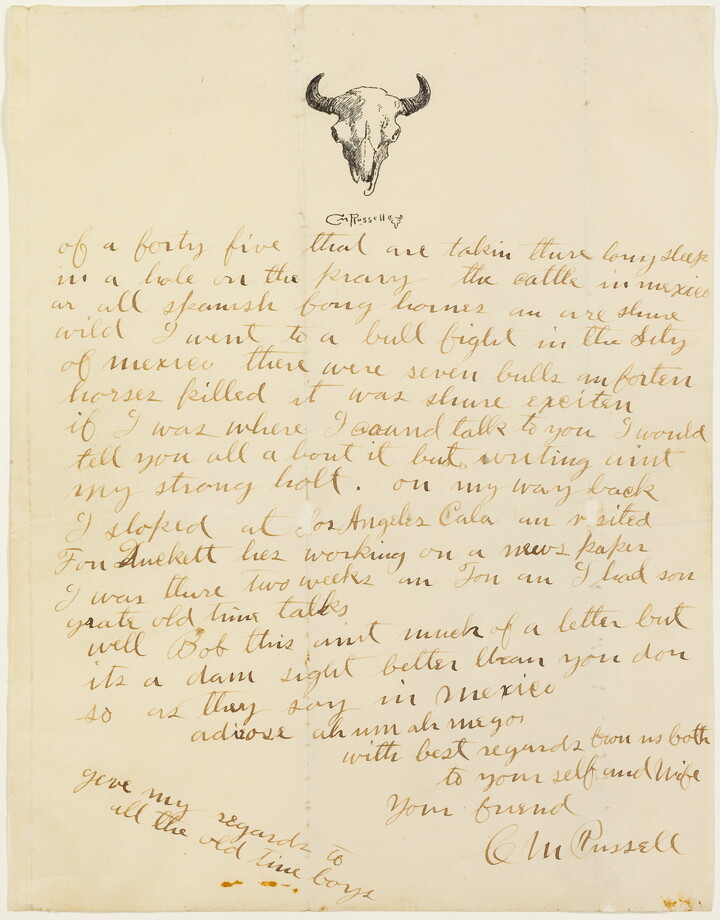 CM Russell
of a forty five that are takin there long sleek
in a hole on the prary the cattle in mexico
ar all spanish long hornes an are shure
wild I went to a bull fight in the Sity
of mexico there were seven bulls an forten
horses killed it was shure exciten
if I was where I cound talk to you I would
tell you all a bout it but writing aint
my strong holt. on my way back
I stoped at Los Angeles Cala an visited
Fon Duckett hes working on a news paper
I was there two weeks an Fon an I had son
grate old time talks
well Bob this aint much of a letter but
its a dam sight better than you don
so as they say in mexico
adiose ah um ah megos
with best regards from us both
to your self and Wife
Your friend
CM Russell
geve my regards to
all the old time boys